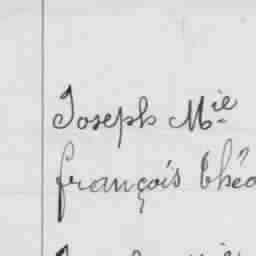 Joseph Mie
françois théo